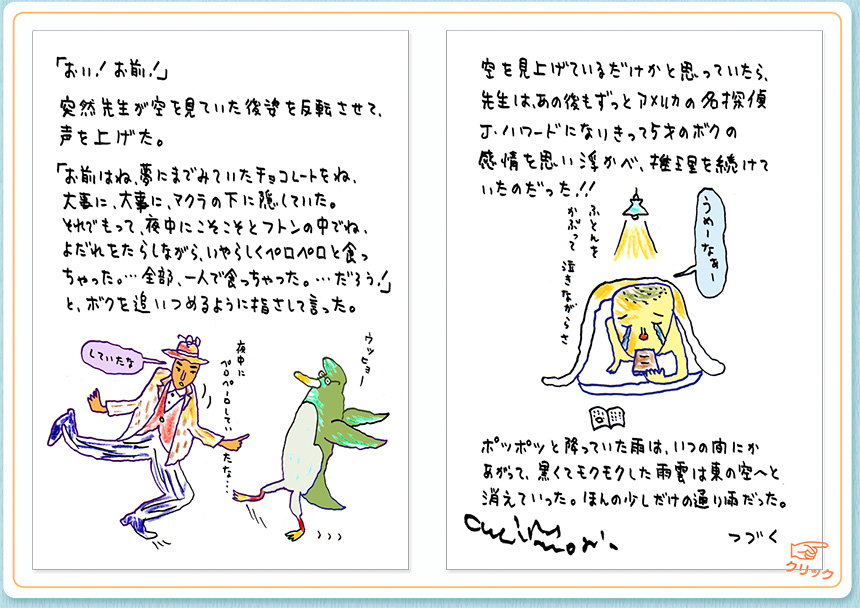 「おい！お前！」
突然先生が空を見ていた後姿を反転させて、
声を上げた。
「お前はね、夢にまでみていたチョコレートをね、
大事に、大事に、マクラの下に隠していた。
それでもって、夜中にこそこそとフトンの中でね、
よだれをたらしながら、いやらしくペロペロと食っ
ちゃった。…全部、一人で食っちゃった。…だろう！」
と、ボクを追いつめるように指さして言った。
していたな
夜中に
ペロペーロしてい
たな…
ウッヒョー
空を見上げているだけかと思っていたら、
先生は、あの後もずっとアメリカの名探偵
J・ハワードになりきって5才のボクの
感情を思い浮かべ、推理を続けて
いたのだった！！
うめーなぁー
ふとんを
かぶって
泣きながらさ
ポツポツと降っていた雨は、いつの間にか
あがって、黒くてモクモクした雨雲は東の空へと
消えていった。ほんの少しだけの通り雨だった。
つづく
クリック